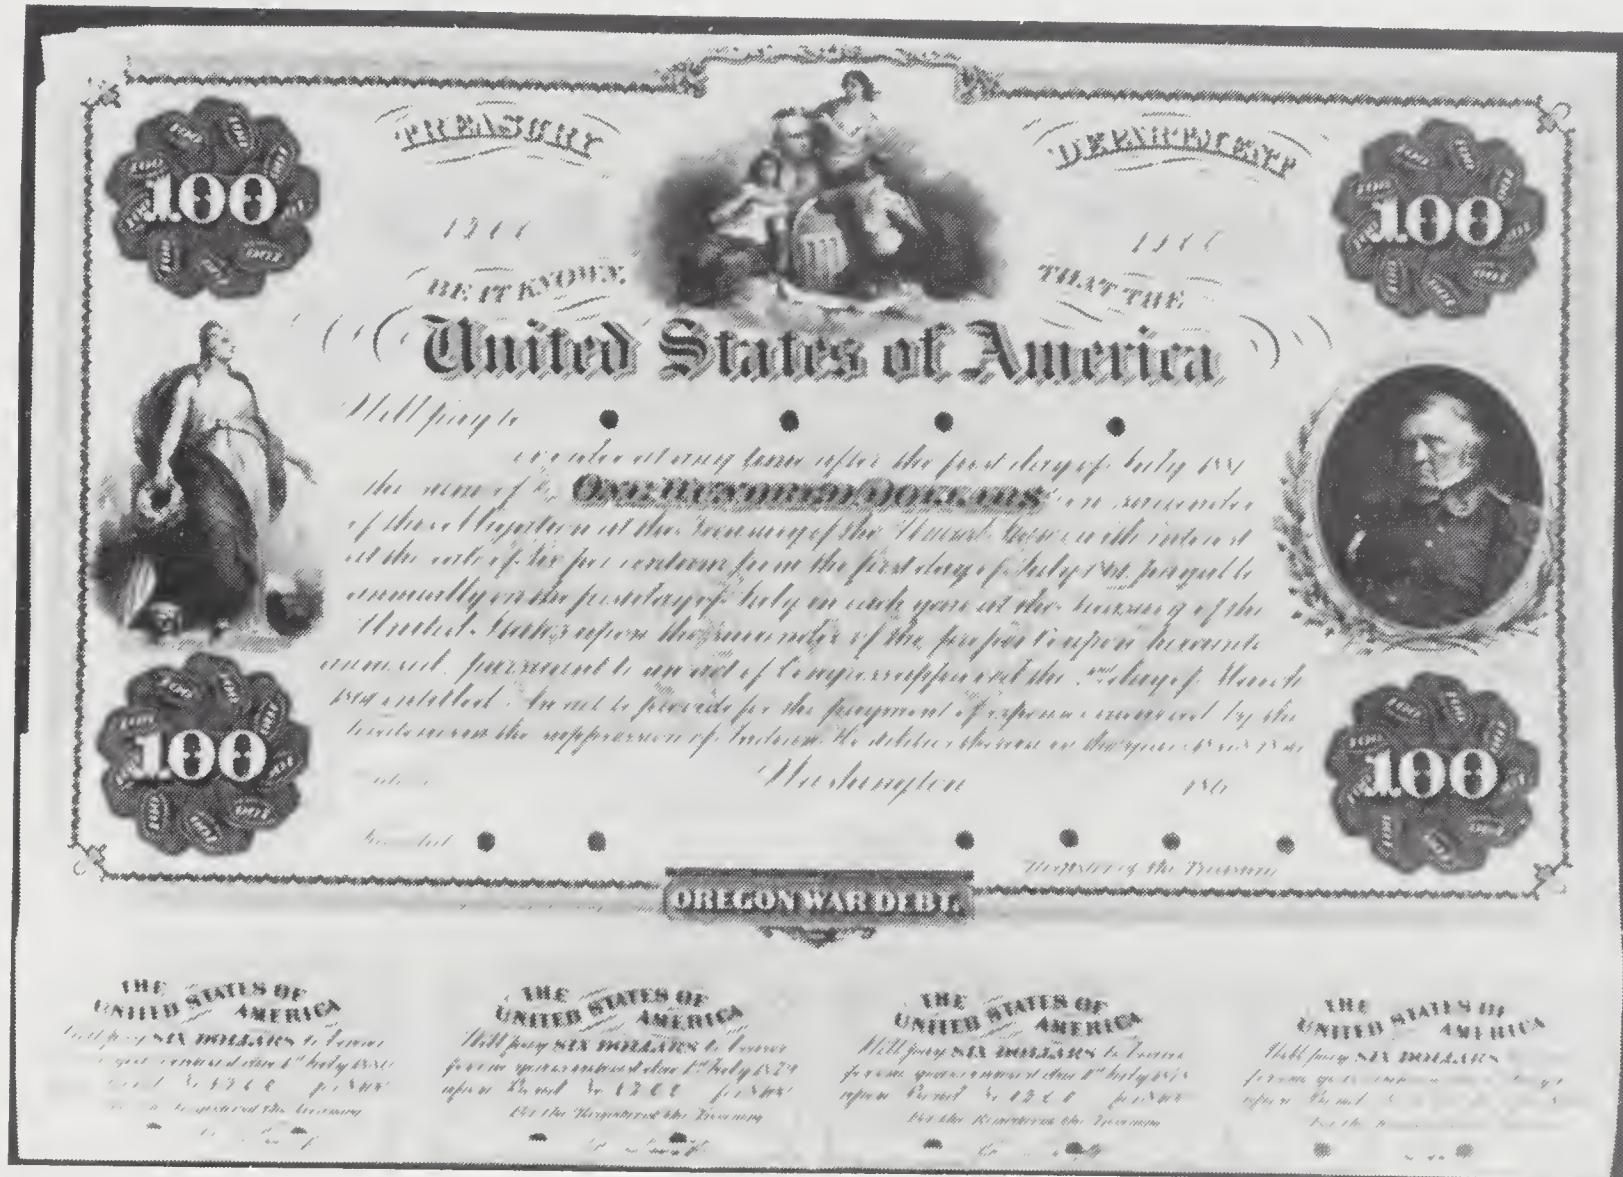 TREASURY DEPARTMENT
100 100
BE IT KNOWN, THAT THE
United States of America
Will pay to
or order at any time after the first day of July 1881
the sum of ONE HUNDRED DOLLARS on surrender
of this obligation at the Treasury of the United States with interest
at the rate of six per centum from the first day of July 1861 payable
annually on the first day of July in each year at the treasury of the
United States upon the surrender of the proper Coupon hereunto
annexed pursuant to an act of Congress approved the 2nd day of March
1861 entitled An act to provide for the payment of expenses incurred by the
in the suppression of Indian Hostilities therein in the years
100 100
Washington 186
Register of the Treasury
OREGON WAR DEBT.
THE UNITED STATES OF AMERICA
Will pay SIX DOLLARS to bearer
for one years interest due 1st July 1880
Register of the Treasury
THE UNITED STATES OF AMERICA
Will pay SIX DOLLARS to bearer
for one years interest due 1st July 1879
upon Bond No for $100
For the Register of the Treasury
THE UNITED STATES OF AMERICA
Will pay SIX DOLLARS to bearer
for one years interest due 1st July 1878
upon Bond No for $100
For the Register of the Treasury
THE UNITED STATES OF AMERICA
Will pay SIX DOLLARS
for one years
upon Bond
For the